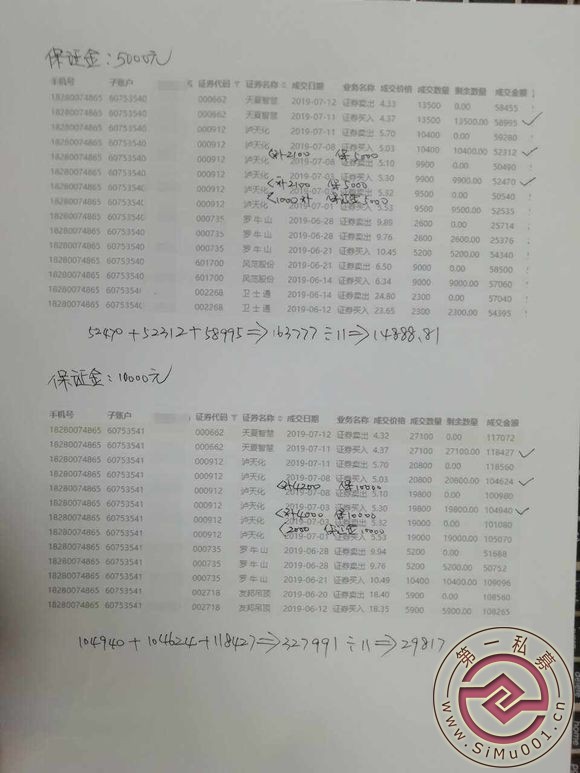 保证金:5000元
手机号 子账户 证券代码 证券名称 成交日期 业务名称 成交价格 成交数量 剩余数量 成交金额
18280074865 60753540 000662 天夏智慧 2019-07-12 证券卖出 4.33 13500 0.00 58455
18280074865 60753540 000662 天夏智慧 2019-07-11 证券买入 4.37 13500 13500.00 58995 ✓
18280074865 60753540 000912 泸天化 2019-07-11 证券卖出 5.70 10400 0.00 59280
18280074865 60753540 000912 泸天化 2019-07-08 证券买入 5.03 10400 10400.00 52312 ✓
2100 保5000
18280074865 60753540 000912 泸天化 2019-07-08 证券卖出 5.10 9900 0.00 50490
18280074865 60753540 000912 泸天化 2019-07-03 证券买入 5.30 9900 9900.00 52470 ✓
2100 保5000
18280074865 60753540 000912 泸天化 2019-07-03 证券卖出 5.32 9500 0.00 50540
1000 5000
18280074865 60753540 000912 泸天化 2019-07-01 证券买入 5.53 9500 9500.00 52535
18280074865 60753540 000735 罗牛山 2019-06-28 证券卖出 9.89 2600 0.00 25714
18280074865 60753540 000735 罗牛山 2019-06-28 证券卖出 9.76 2600 2600.00 25376
18280074865 60753540 000735 罗牛山 2019-06-21 证券买入 10.45 5200 5200.00 54340
18280074865 60753540 601700 风范股份 2019-06-21 证券卖出 6.50 9000 0.00 58500
18280074865 60753540 601700 风范股份 2019-06-14 证券买入 6.34 9000 9000.00 57060
18280074865 60753540 002268 卫士通 2019-06-14 证券卖出 24.80 2300 0.00 57040
18280074865 60753540 002268 卫士通 2019-06-12 证券买入 23.65 2300 2300.00 54395
52470+52312+58995⇒163777÷11⇒14888.81
保证金:10000元
手机号 子账户 证券代码 证券名称 成交日期 业务名称 成交价格 成交数量 剩余数量 成交金额
18280074865 60753541 000662 天夏智慧 2019-07-12 证券卖出 4.32 27100 0.00 117072
18280074865 60753541 000662 天夏智慧 2019-07-11 证券买入 4.37 27100 27100.00 118427 ✓
18280074865 60753541 000912 泸天化 2019-07-11 证券卖出 5.70 20800 0.00 118560
18280074865 60753541 000912 泸天化 2019-07-08 证券买入 5.03 20800 20800.00 104624 ✓
4200 保10000
18280074865 60753541 000912 泸天化 2019-07-08 证券卖出 5.10 19800 0.00 100980
18280074865 60753541 000912 泸天化 2019-07-03 证券买入 5.30 19800 19800.00 104940 ✓
4000 保10000
18280074865 60753541 000912 泸天化 2019-07-03 证券卖出 5.32 19000 0.00 101080
2000 10000
18280074865 60753541 000912 泸天化 2019-07-01 证券买入 5.53 19000 19000.00 105070
18280074865 60753541 000735 罗牛山 2019-06-28 证券卖出 9.94 5200 0.00 51688
18280074865 60753541 000735 罗牛山 2019-06-28 证券卖出 9.76 5200 5200.00 50752
18280074865 60753541 000735 罗牛山 2019-06-21 证券买入 10.49 10400 10400.00 109096
18280074865 60753541 002718 友邦吊顶 2019-06-20 证券卖出 18.40 5900 0.00 108560
18280074865 60753541 002718 友邦吊顶 2019-06-12 证券买入 18.35 5900 5900.00 108265
104940+104624+118427⇒327991÷11⇒29817
第一私募
www.SiMu001.cn